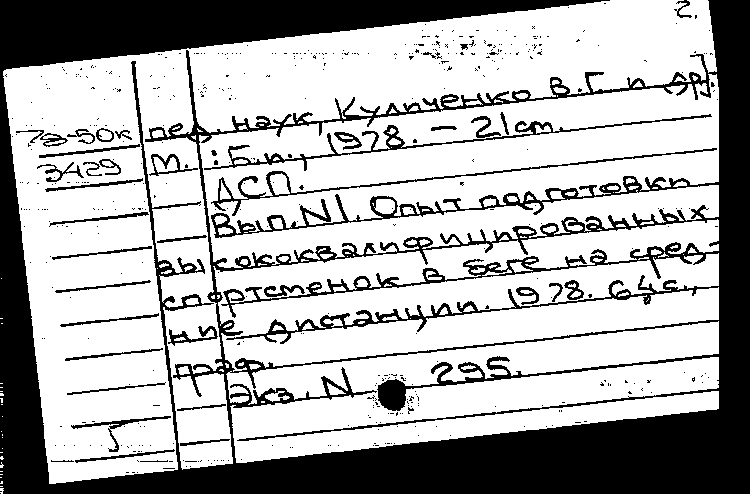 2.
пед. наук, Куличенко В.Г. и др].
78-50к
М. : Б.и., 1978. – 21 см.
3429
ДСП.
Вып. N1. Опыт подготовки
высококвалифицированных
спортсменок в беге на сред-
ние дистанции. 1978. 64 с.,
граф.
Экз. N 295.
5